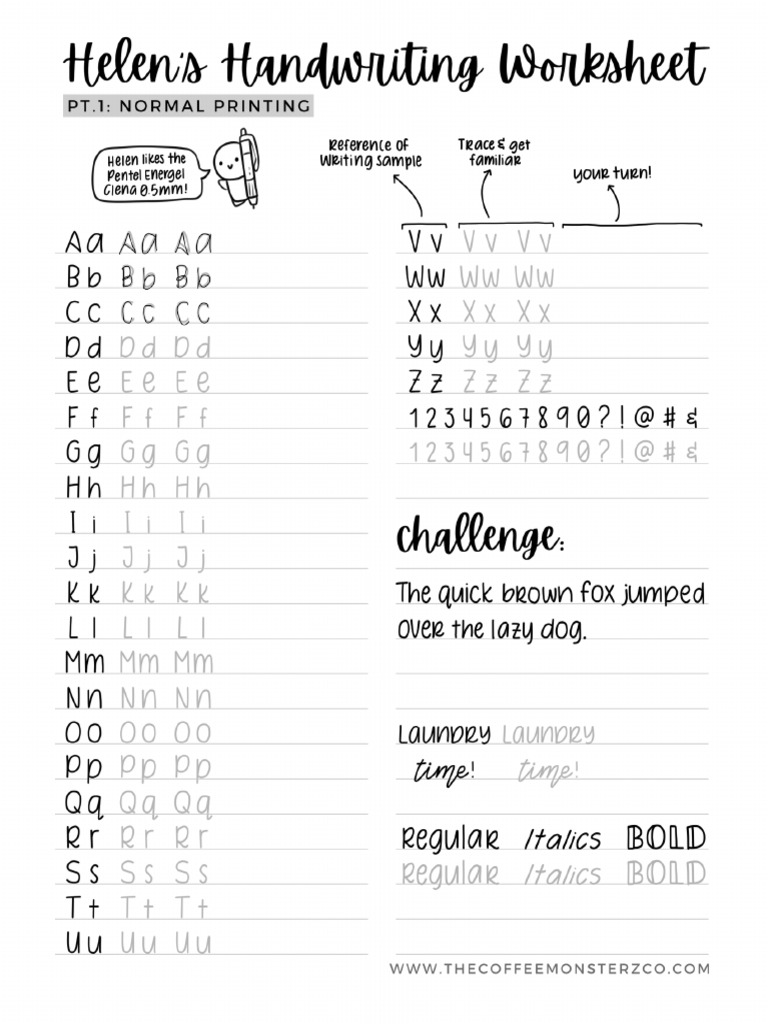 Helen's Handwriting Worksheet
PT.1: NORMAL PRINTING
Helen likes the
Pentel Energel
Clena 0.5mm!
Reference of
Writing sample
Trace & get
familiar
your turn!
Aa Aa Aa
Bb Bb Bb
Cc Cc Cc
Dd Dd Dd
Ee Ee Ee
Ff Ff Ff
Gg Gg Gg
Hh Hh Hh
Ii Ii Ii
Jj Jj Jj
Kk Kk Kk
Ll Ll Ll
Mm Mm Mm
Nn Nn Nn
Oo Oo Oo
Pp Pp Pp
Qq Qq Qq
Rr Rr Rr
Ss Ss Ss
Tt Tt Tt
Uu Uu Uu
Vv Vv Vv
Ww Ww Ww
Xx Xx Xx
Yy Yy Yy
Zz Zz Zz
1 2 3 4 5 6 7 8 9 0 ? ! @ # &
1 2 3 4 5 6 7 8 9 0 ? ! @ # &
challenge:
The quick brown fox jumped
over the lazy dog.
LAUNDRY LAUNDRY
time! time!
Regular Italics BOLD
Regular Italics BOLD
WWW.THECOFFEEMONSTERZCO.COM